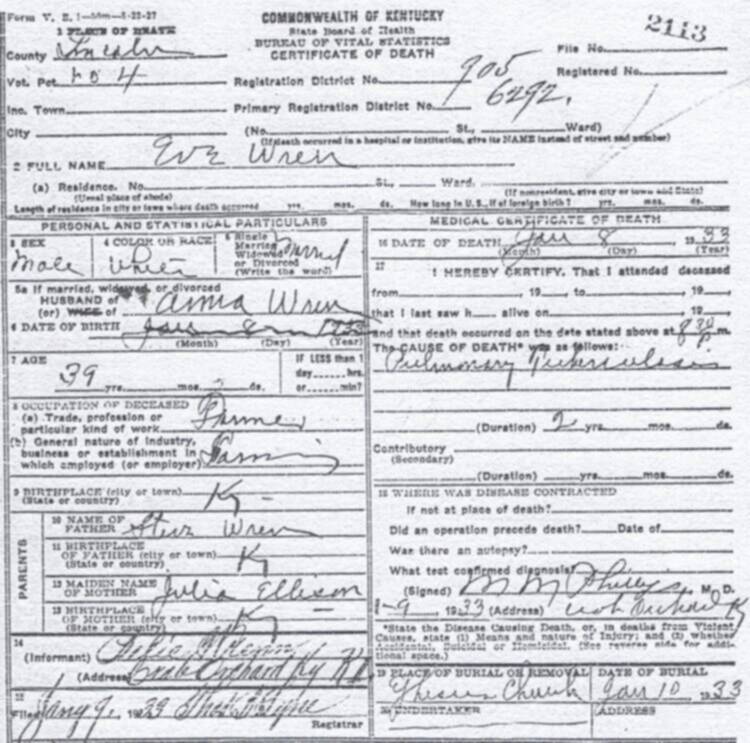 Form V. S. 1-50m-8-22-27
COMMONWEALTH OF KENTUCKY
State Board of Health
BUREAU OF VITAL STATISTICS
CERTIFICATE OF DEATH
2113
1 PLACE OF DEATH
County Lincoln
File No.
Vot. Pct. 4
Registration District No. 905
Registered No.
Inc. Town
Primary Registration District No. 6292.
City (No. St., Ward)
(If death occurred in a hospital or institution, give its NAME instead of street and number)
2 FULL NAME Eve Wren
(a) Residence. No. St., Ward.
(Usual place of abode) (If nonresident, give city or town and State)
Length of residence in city or town where death occurred yrs. mos. ds. How long in U. S., if of foreign birth? yrs. mos. ds.
PERSONAL AND STATISTICAL PARTICULARS
3 SEX Male
4 COLOR OR RACE White
5 Single Married Widowed or Divorced (Write the word) Married
5a If married, widowed, or divorced
HUSBAND of
(or) WIFE of Anna Wren
6 DATE OF BIRTH Jan 8 1933
(Month) (Day) (Year)
7 AGE
39 yrs. mos. ds.
IF LESS than 1
day hrs.
or min?
8 OCCUPATION OF DECEASED
(a) Trade, profession or
particular kind of work Farmer
(b) General nature of industry,
business or establishment in
which employed (or employer) Farming
9 BIRTHPLACE (city or town)
(State or country) Ky
PARENTS
10 NAME OF
FATHER Steve Wren
11 BIRTHPLACE
OF FATHER (city or town)
(State or country) Ky
12 MAIDEN NAME
OF MOTHER Julia Ellison
13 BIRTHPLACE
OF MOTHER (city or town)
(State or country) Ky
14
(Informant) Wrenn
(Address) Crab Orchard Ky
15
Filed Jany 9, 19
Registrar
MEDICAL CERTIFICATE OF DEATH
16 DATE OF DEATH Jan 8 1933
(Month) (Day) (Year)
17
I HEREBY CERTIFY, That I attended deceased
from , 19 to , 19
that I last saw h alive on , 19
and that death occurred on the date stated above at 8 30 P
The CAUSE OF DEATH* was as follows:
Pulmonary Tuberculosis
(Duration) 2 yrs. mos. ds.
Contributory
(Secondary)
(Duration) yrs. mos. ds.
18 WHERE WAS DISEASE CONTRACTED
If not at place of death?
Did an operation precede death? Date of
Was there an autopsy?
What test confirmed diagnosis?
(Signed) M M Phillips M. D.
1-9, 1933 (Address) Crab Orchard Ky
*State the Disease Causing Death, or, in deaths from Violent
Causes, state (1) Means and nature of Injury; and (2) whether
Accidental, Suicidal or Homicidal. (See reverse side for addi-
tional space.)
19 PLACE OF BURIAL OR REMOVAL
Church
DATE OF BURIAL
Jan 10 1933
20 UNDERTAKER
ADDRESS